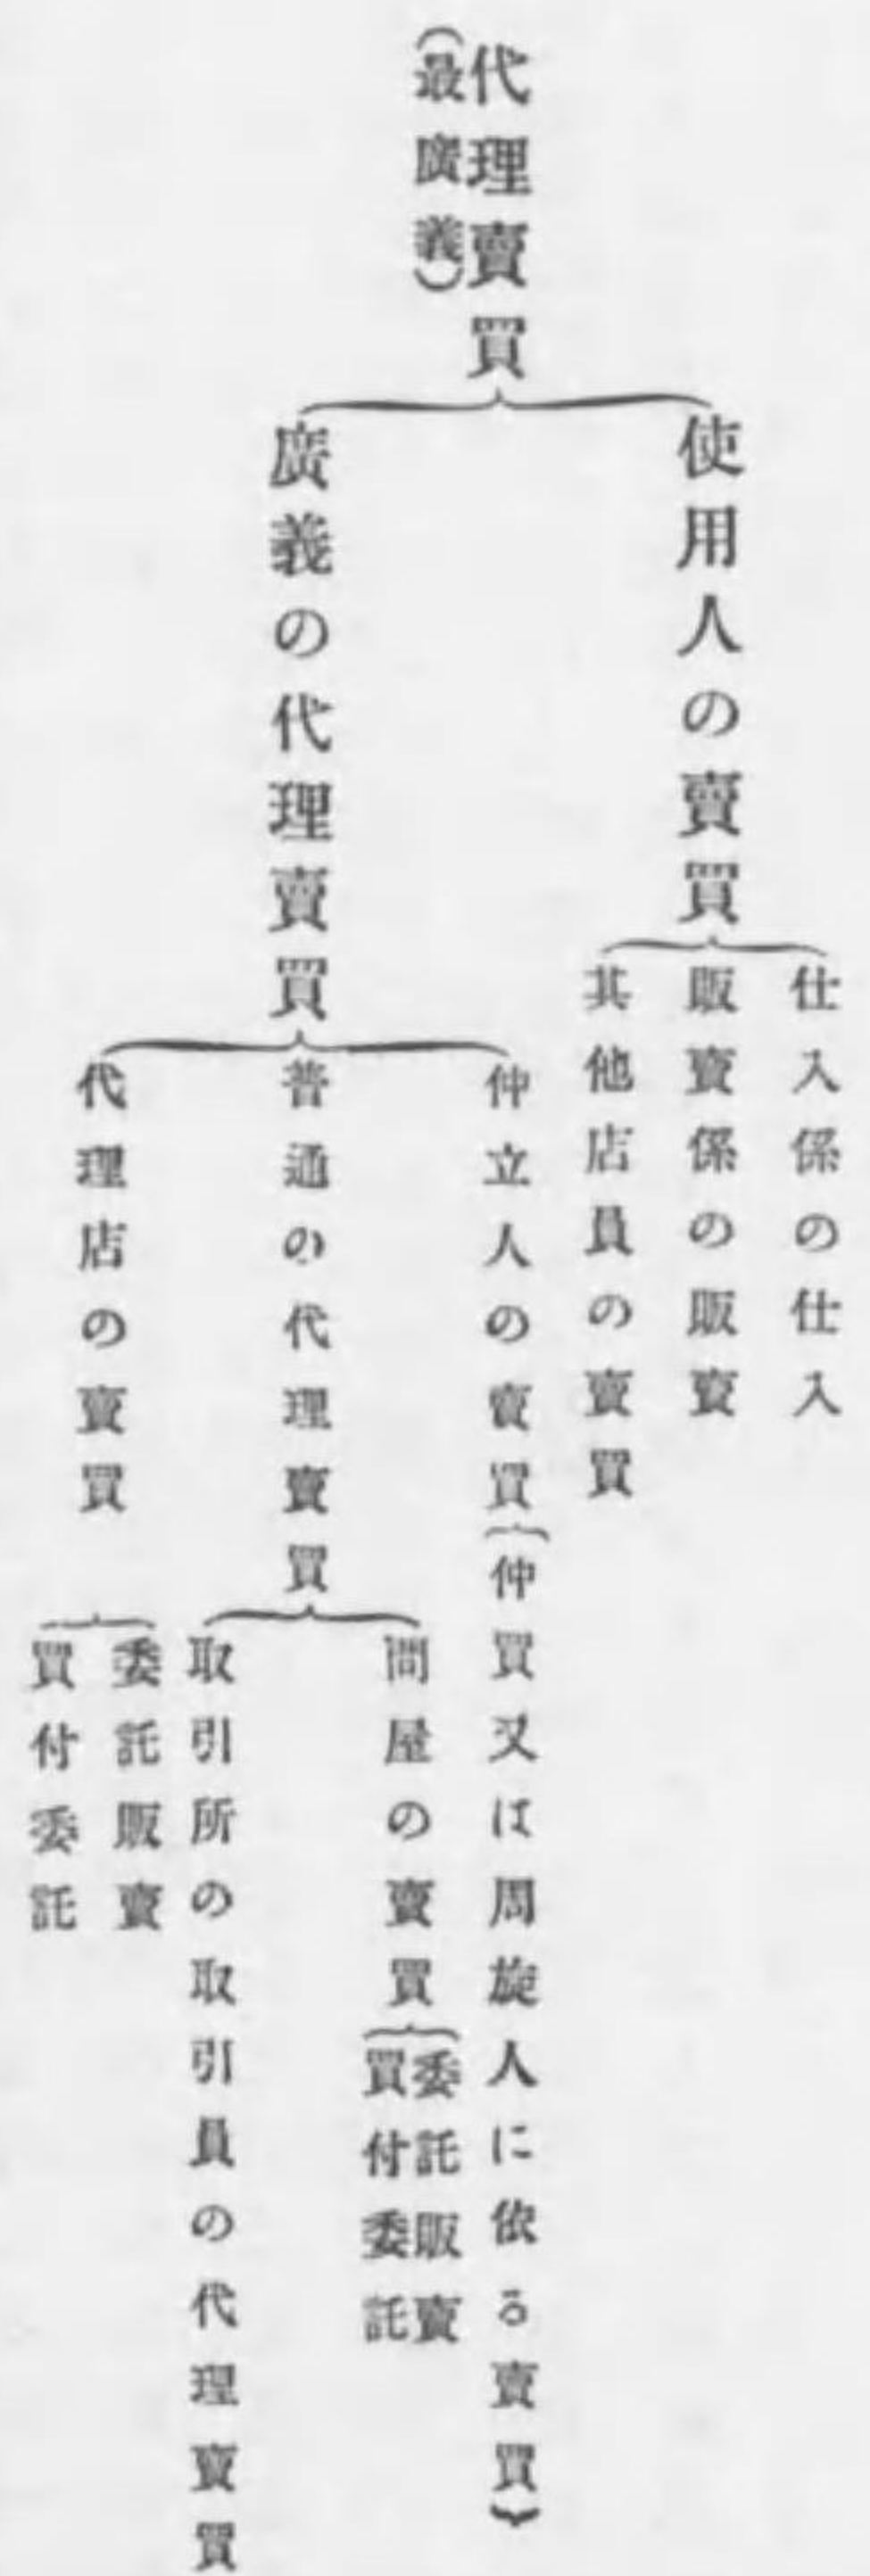 代理賣買
(最廣義)
使用人の賣買
仕入係の仕入
販賣係の販賣
其他店員の賣買
廣義の代理賣買
仲立人の賣買
仲買又は周旋人に依る賣買
普通の代理賣買
問屋の賣買
委託販賣
買付委託
取引所の取引員の代理賣買
代理店の賣買
委託販賣
買付委託